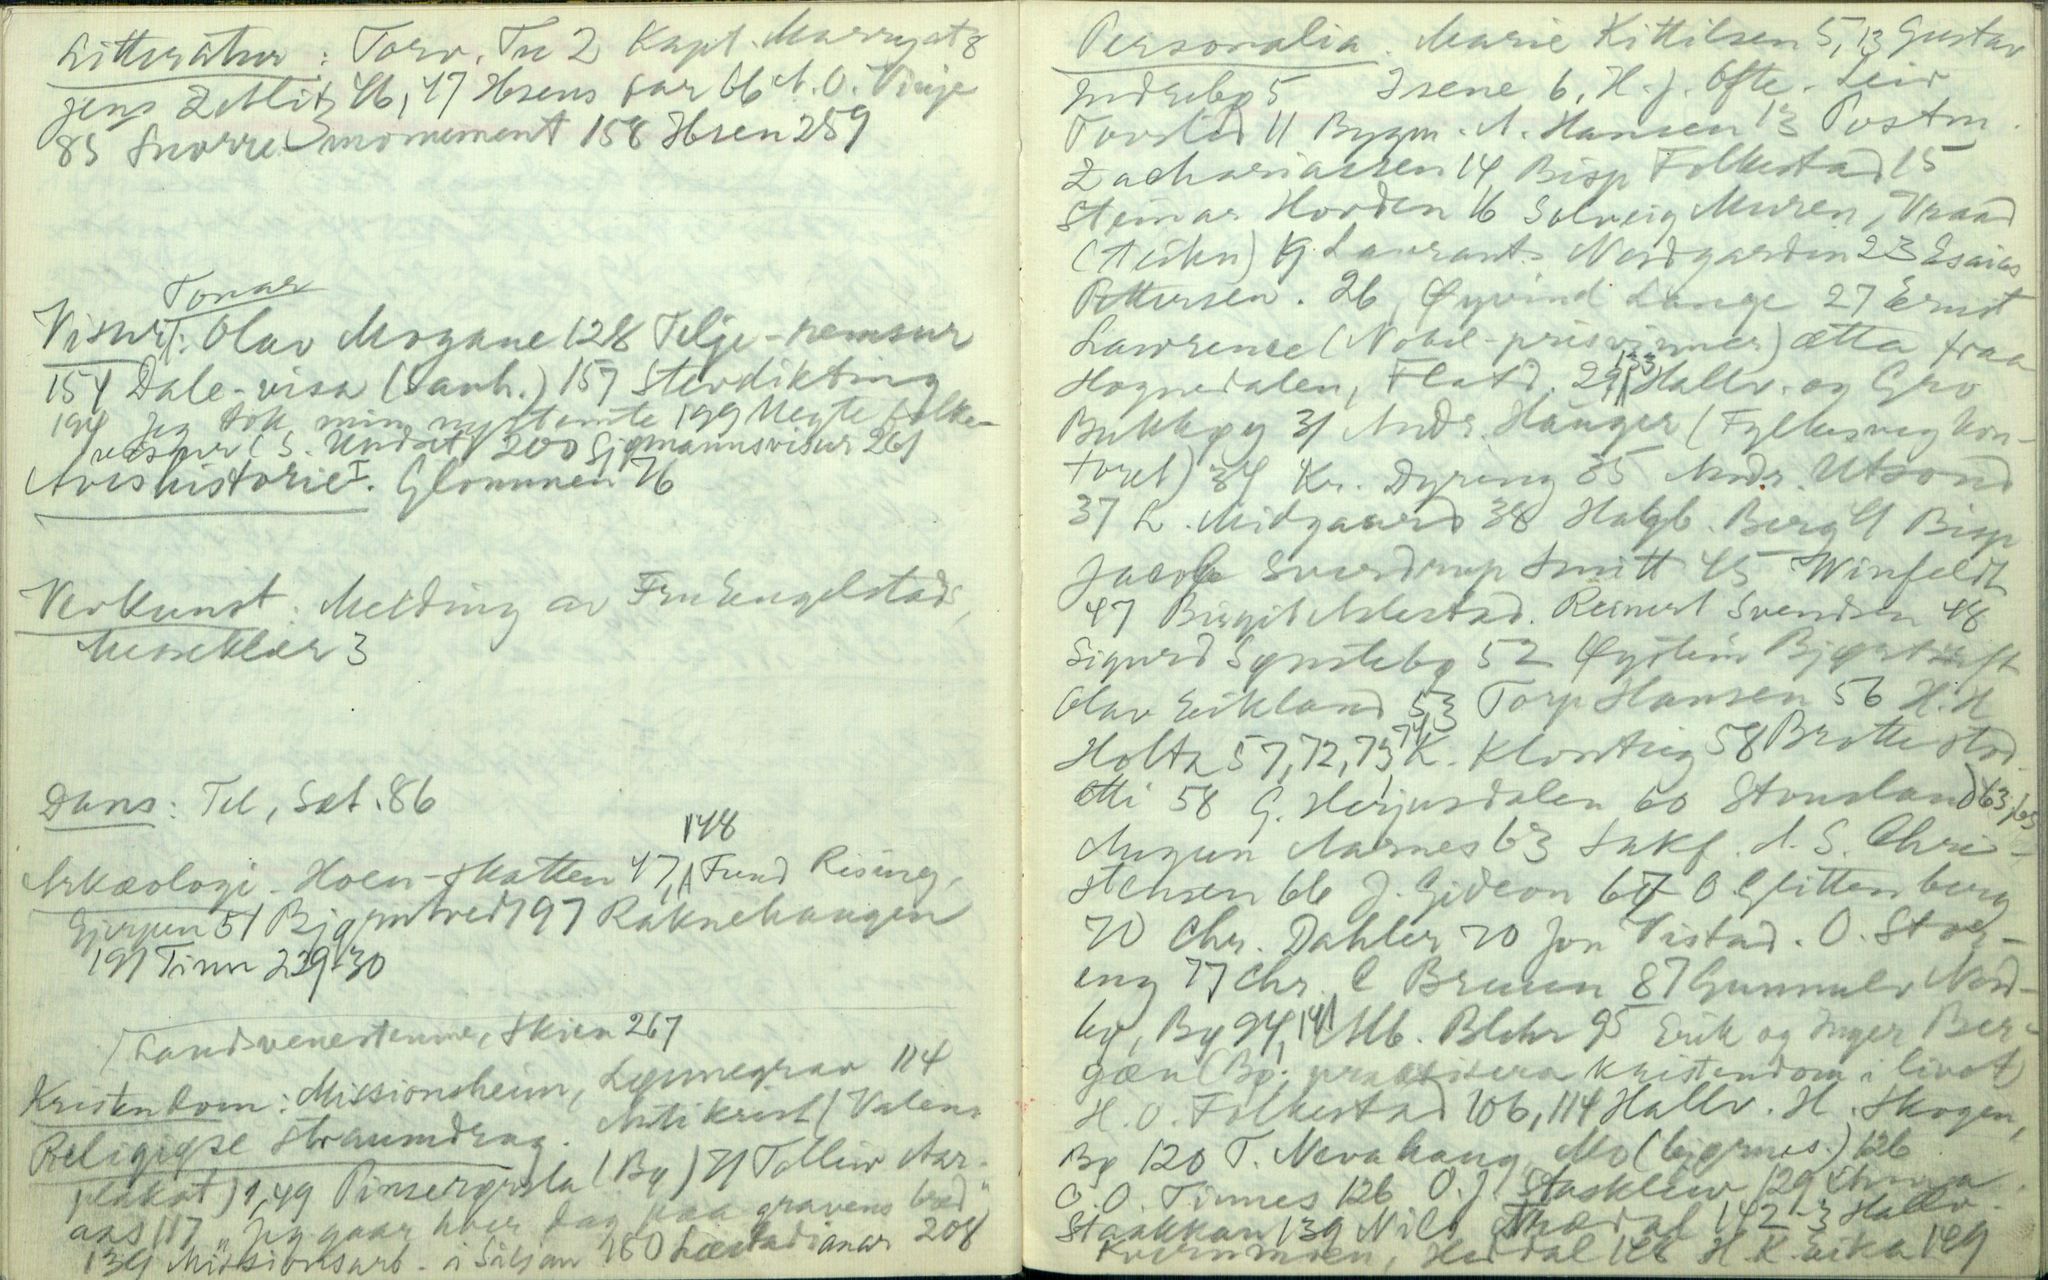 Litteratur: Torv. Tu 2 Kapt. Marryat 8
Jens Zetlitz 46, 47 Ibsens far 66 A. O. Vinje
85 Snorre-monument 158 Ibsen 259
Tonar
Visur: Olav Mogane 128 Telje-remsur
154 Dale-visa (Sauh.) 157 Stevdikting
194 Jeg tok min nystemte 199 Negte folke-
visur (S. Undset) 200 Sigmannsvisur 261
Avishistorie. Glommen 76
Verkunst. Melding av Fru Engelstad,
Messeklær 3
Dans: Tel, Sæt. 86
148
Arkæologi. Hoen-skatten 47, Fund Rising,
Gjerpen 51 Bjørntvedt 197 Raknehaugen
191 Tinn 229-30
Landsvenestemne, Skien 267
Kristendom: Missionsheim, Lyunegrav 114
Religiøse straumdrag. Antikrist (Valens
plakat) 1,49 Pinserørsla (Bø) 71 Tollev Aar-
aas 117 "Jeg gaar hver dag paa gravens bred"
139 Missionsarb. i Siljan 160 Læstadianar 208
Personalia. Marie Kittilsen 5, 13 Gustav
Indrebø 5 Isene 6, H. J. Ofte. Leiv
Torstad 11 Bygm. A. Hansen 13 Postm.
Zachariassen 14 Bisp Folkestad 15
Steinar Horden 16 Solveig Muren, Vraad
(teikn) 19 Laurants Nordgarden 23 Esaias
Pettersen. 26, Øyvind Lange 27 Ernst
Lawrence (Nobel-prisvinner) ætta fraa
Hognedalen, Flatd. 29, 133 Hallv. og Gro
Bukkøy 31 Andr. Hauger (Fylkesvegkon-
toret) 34 Kr. Dyring 35 Andr. Utsond
37 L. Midgaard 38 Halgb. Berg 41 Bisp
Jacob Sverdrup Smitt 45 Winfeldt
47 Birgit Abestad. Reinert Svendsen 48
Sigurd Synsteby 52 Øystein Bjørntuft
Olav Eikland 53 Torp Hansen 56 H. H
Holta 57, 72, 73, 74 K. Klonteig 58 Brottestod
Otti 58 G. Herjusdalen 60 Stousland 63, 65
Augun Aarnes 63 Sakf. A. S. Chri-
stensen 66 J. Gideon 67 O Glittenberg
70 Chr. Dahler 70 Jon Vistad. O. Stor-
eng 77 Chr. C Bruun 87 Gunnulv Nord-
bø, Bø 94, 141 Alb. Blehr 95 Erik og Inger Ber-
gan (Bø: praktisera kristendom i livet)
H. O. Folkestad 106, 114 Hallv. H. Skogen,
Bø 120 T. Nevahaug, Mo (bjørnes.) 126
O. O. Tinnes 126 O. J. Staskleiv 129 Anna
Staakkan 139 Nils Mædal 142-3 Hallv.
Kvernmoen, Heddal 148 H. K. Eika 149